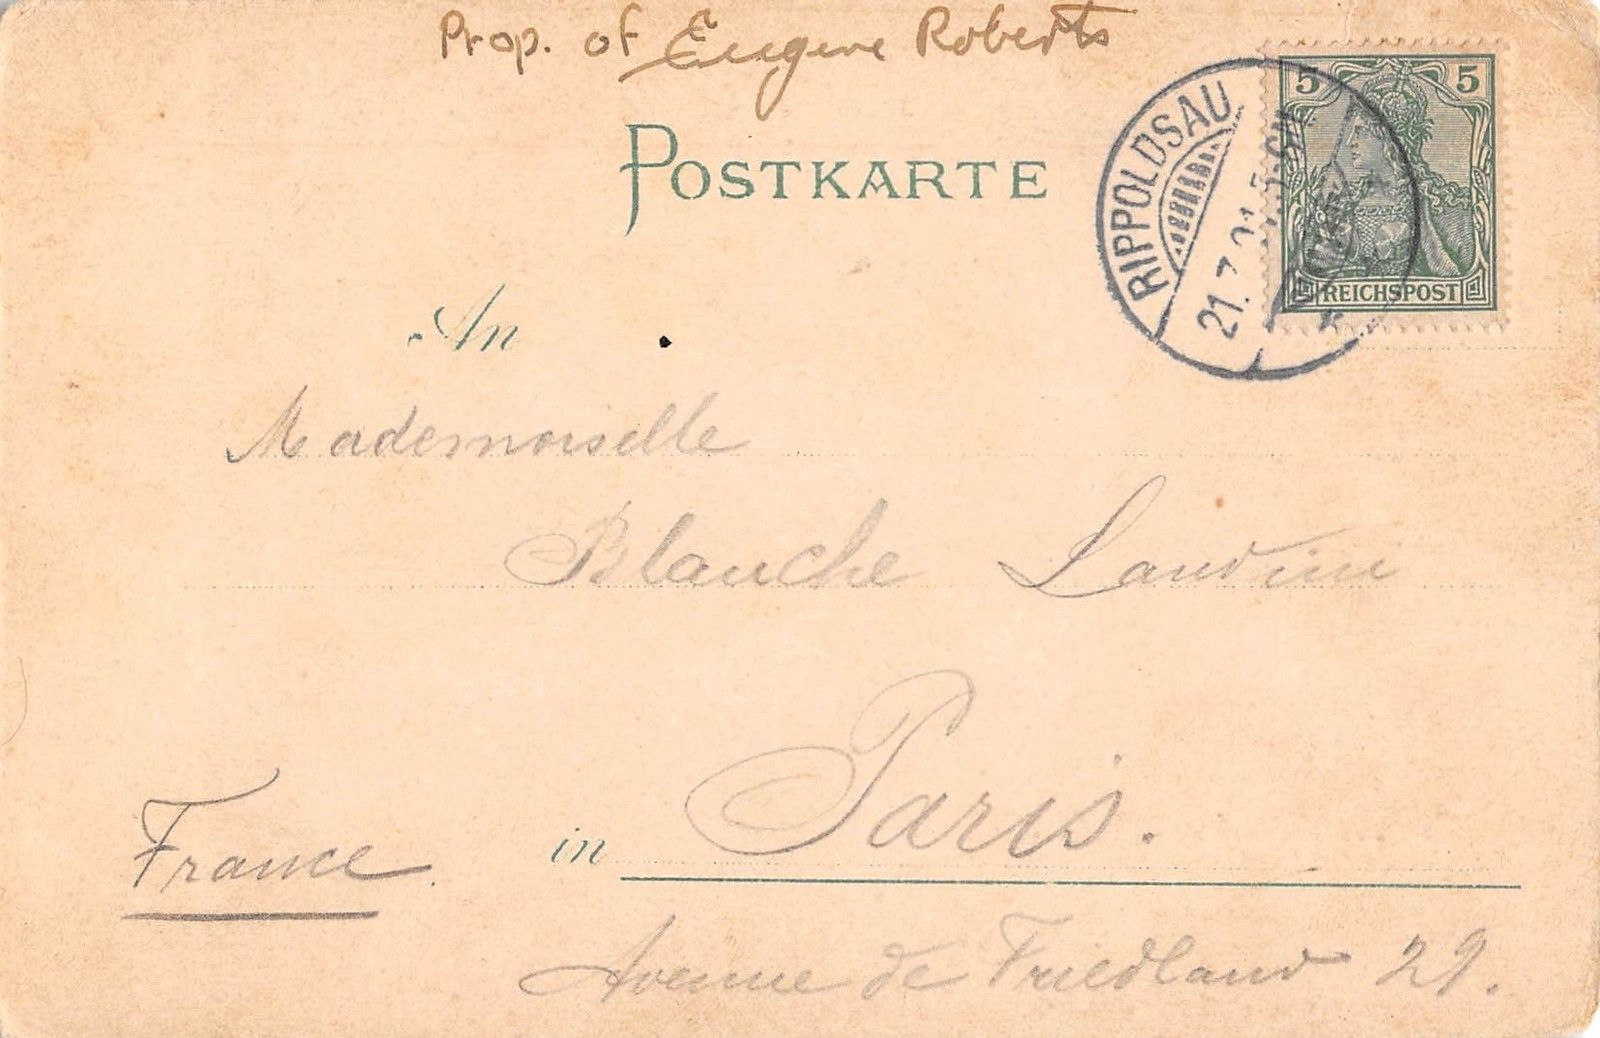 Prop. of Eugene Roberts
POSTKARTE
5 5
REICHSPOST
RIPPOLDSAU
21.7.01
An
Mademoiselle
Blanche Landini
in Paris.
France.
Avenue de Friedland 29.